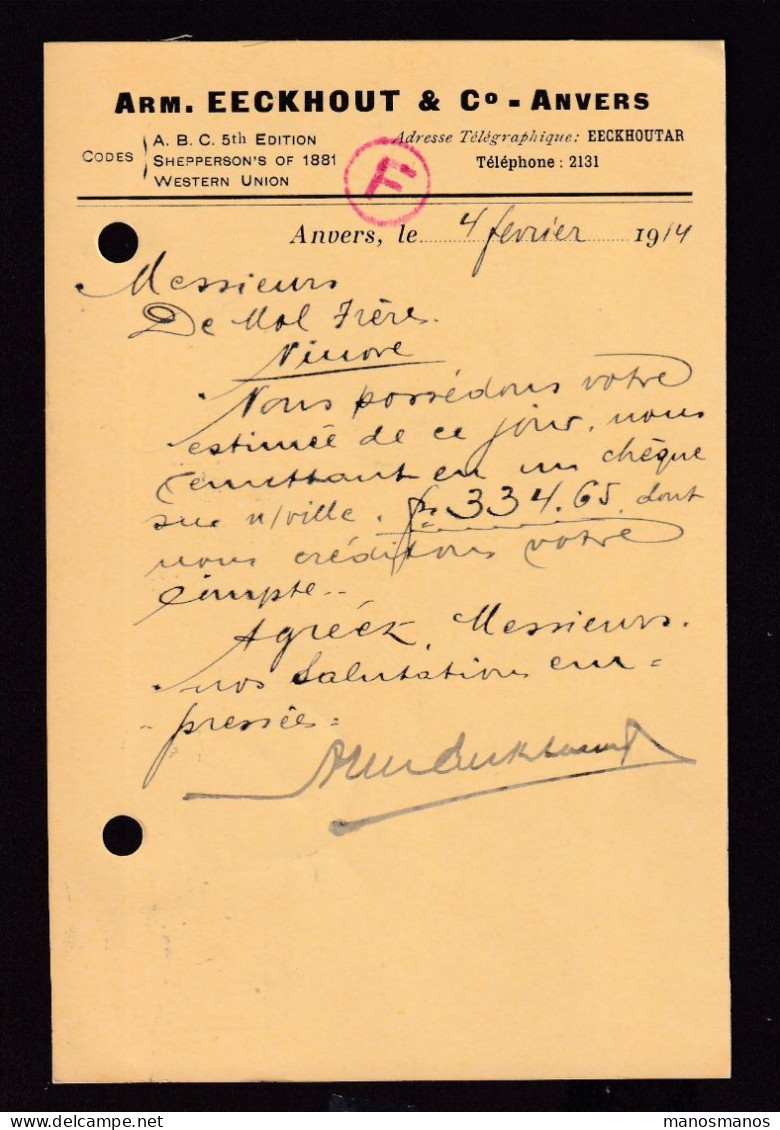 ARM. EECKHOUT & Co - ANVERS
CODES
A. B. C. 5th EDITION
SHEPPERSON'S OF 1881
WESTERN UNION
Adresse Télégraphique: EECKHOUTAR
Téléphone : 2131
F
Anvers, le 4 février 1914
Messieurs
De Mol Frères.
Ninove
Nous possédons votre
estimée de ce jour, nous
remettant en un chèque
sur n/ville. fr 334.65. dont
nous créditons votre
compte..
Agréez, Messieurs.
nos salutations em-
pressées.
Arm Eeckhout
manosmanos